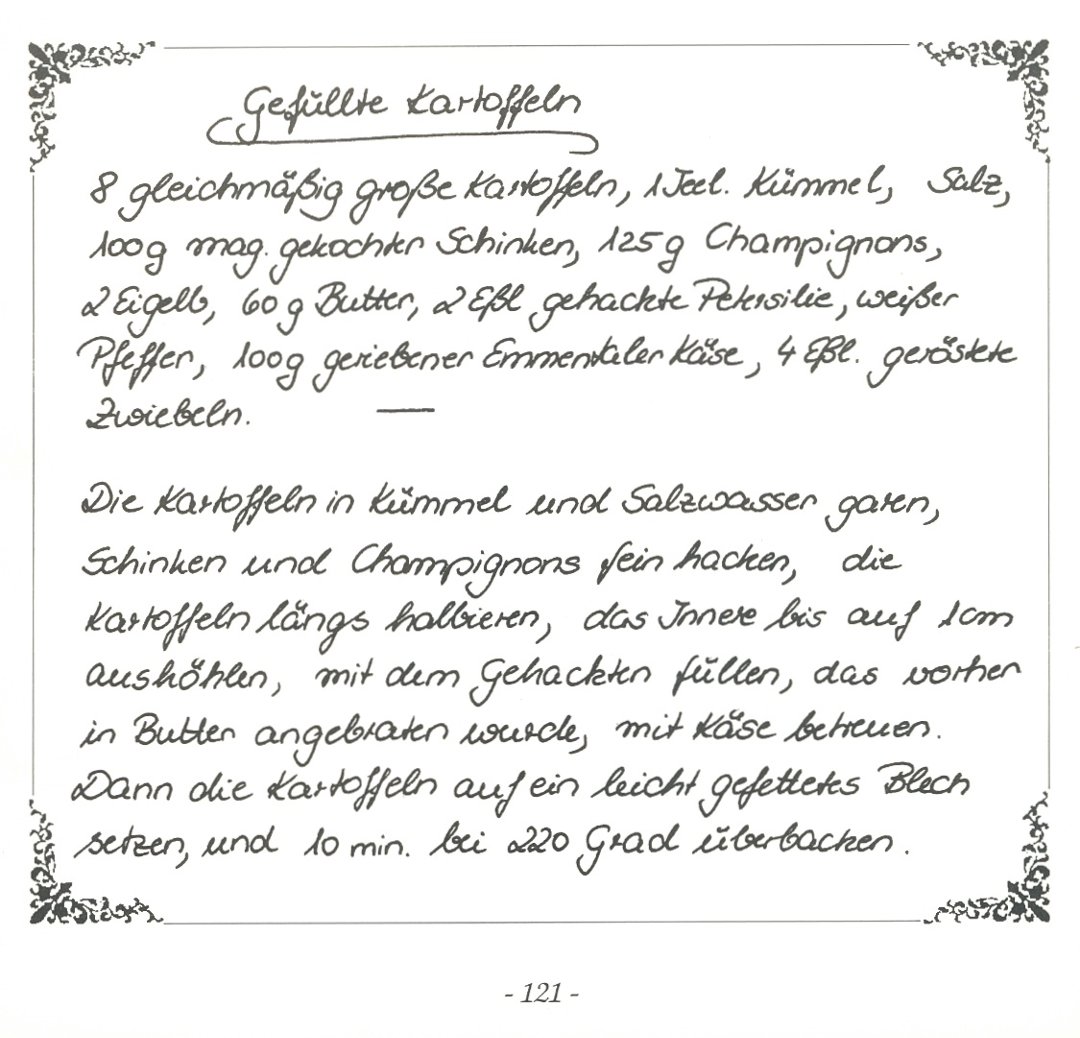 Gefüllte Kartoffeln
8 gleichmäßig große Kartoffeln, 1 Teel. Kümmel, Salz,
100g mag. gekochter Schinken, 125 g Champignons,
2 Eigelb, 60 g Butter, 2 Eßl gehackte Petersilie, weißer
Pfeffer, 100g geriebener Emmentaler Käse, 4 Eßl. geröstete
Zwiebeln. —
Die Kartoffeln in Kümmel und Salzwasser garen,
Schinken und Champignons fein hacken, die
Kartoffeln längs halbieren, das Innere bis auf 1cm
aushöhlen, mit dem Gehackten füllen, das vorher
in Butter angebraten wurde, mit Käse betreuen.
Dann die Kartoffeln auf ein leicht gefettetes Blech
setzen, und 10 min. bei 220 Grad überbacken.
- 121 -